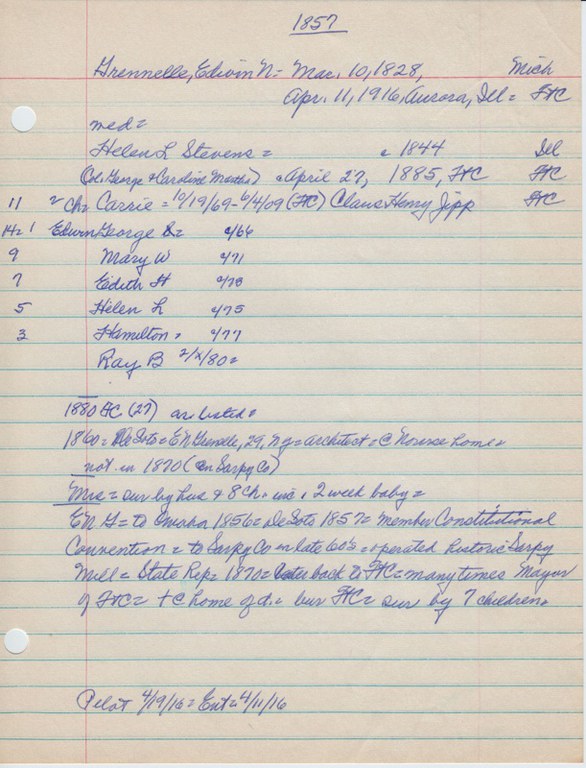 1857
Grennelle, Edwin N = Mar. 10, 1828, Mich
Apr. 11, 1916, Aurora, Ill = FtC
med =
Helen L Stevens = c 1844 Ill
George & Caroline = April 27, 1885, FtC FtC
11 2 ch = Carrie = 10/19/69 - 6/4/09 (FtC) Claus Henry Jipp FtC
14 = 1 Edwin George = c/66
9 Mary W c/71
7 Edith H c/73
5 Helen L c/75
3 Hamilton = c/77
Ray B 2/ /80 =
1880 FC (27) as listed =
1860 = De Soto = E N Grenelle, 29, N Y = architect = @ home =
not in 1870 (in Sarpy Co)
Mrs = sur by hus & 8 ch, inc, 2 week baby =
E N G = to Omaha 1856 = De Soto 1857 = member Constitutional
Convention = to Sarpy Co in late 60's = operated historic Sarpy
Mill = State Rep = 1870 = later back to FtC = many times Mayor
of FtC = + @ home of d. = bur FtC = sur by 7 children =
Pilot 4/19/16 = Ent = 4/11/16